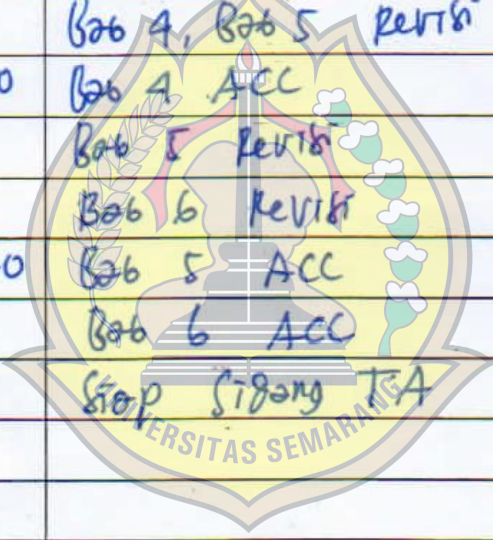 Bab 4, Bab 5 Revisi
0 Bab 4 ACC
Bab 5 Revisi
Bab 6 Revisi
0 Bab 5 ACC
Bab 6 ACC
Siap Sidang TA
UNIVERSITAS SEMARANG